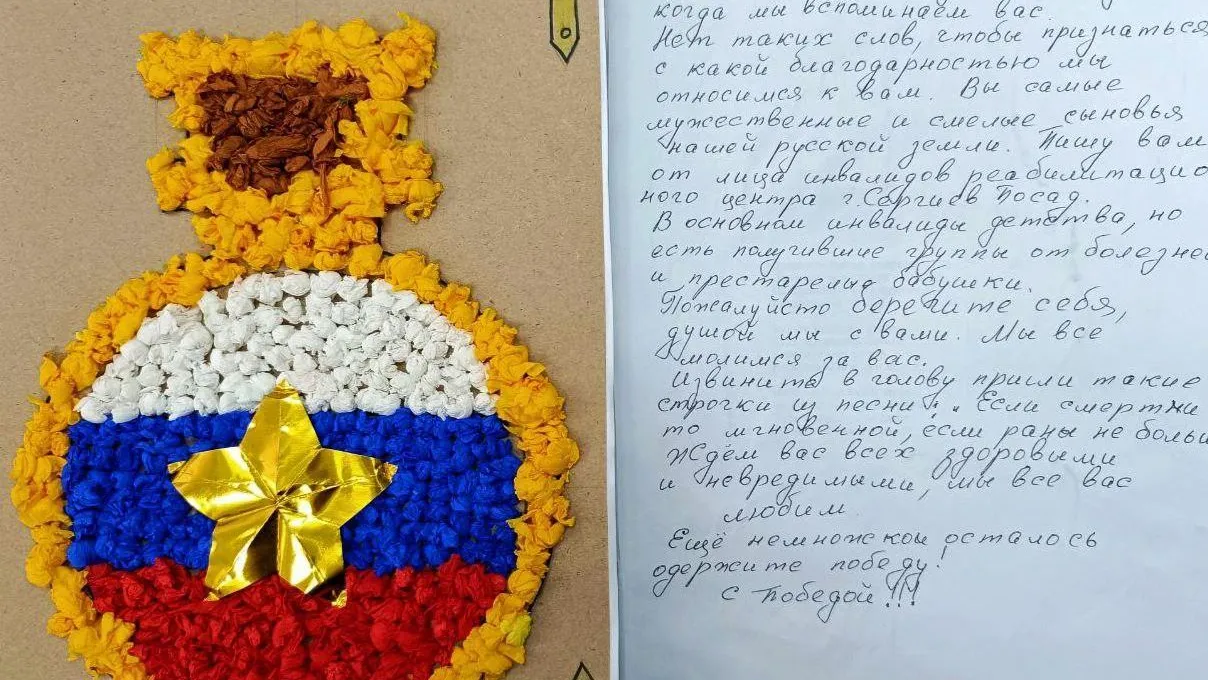 когда мы вспоминаем вас.
Нет таких слов, чтобы признаться
с какой благодарностью мы
относимся к вам. Вы самые
мужественные и смелые сыновья
нашей русской земли. Пишу вам
от лица инвалидов реабилитацио
ного центра г. Сергиев Посад.
В основном инвалиды детства, но
есть получившие группы от болезней
и престарелые бабушки.
Пожалуйсто берегите себя,
душой мы с вами. Мы все
молимся за вас.
Извините в голову пришли такие
строчки из песни... Если смерти
то мгновенной, если раны не больш
Ждём вас всех здоровыми
и невредимыми, мы все вас
любим.
Ещё немножко осталось
одержите победу!
С Победой!!!